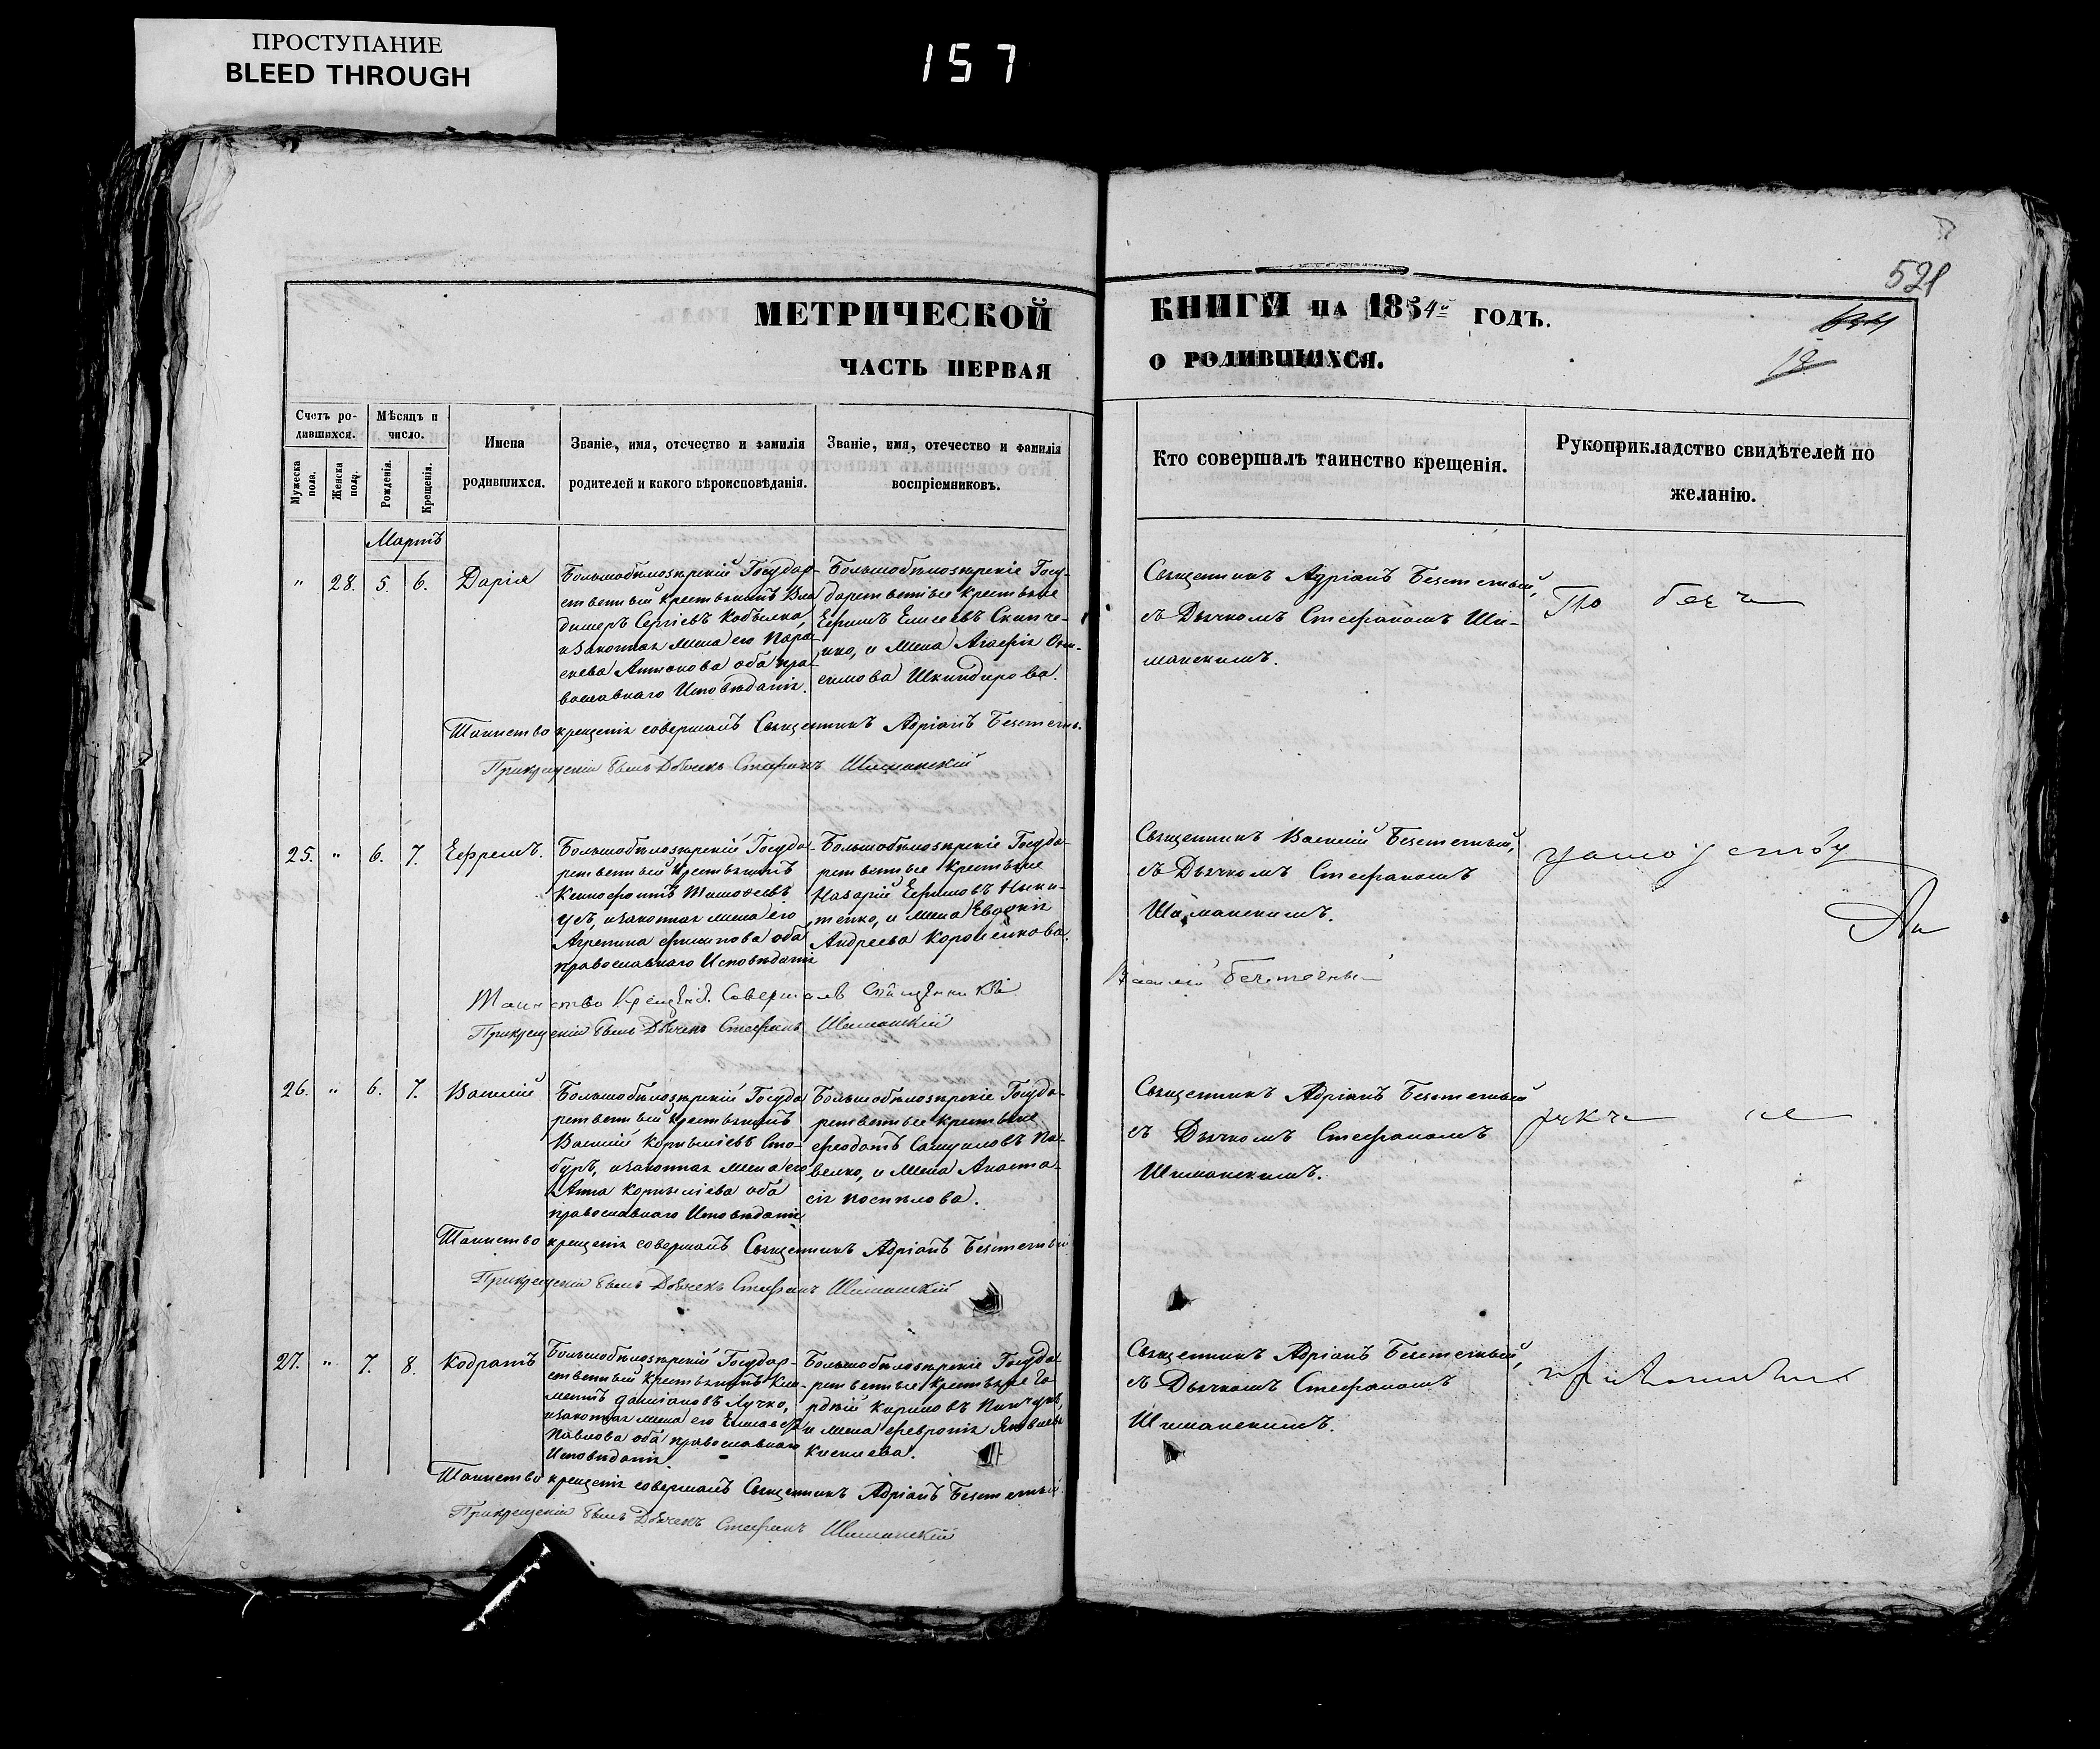 ПРОСТУПАНИЕ
BLEED THROUGH
157
521
МЕТРИЧЕСКОЙ
КНИГИ НА 1854й ГОДЪ.
ЧАСТЬ ПЕРВАЯ
О РОДИВШИХСЯ.
Счетъ ро-
дившихся.
Мужеска
пола.
Женска
пола.
Мѣсяцъ и
число.
Рожденія.
Крещенія.
Имена
родившихся.
Званіе, имя, отечество и фамилія
родителей и какого вѣроисповѣданія.
Званіе, имя, отечество и фамилія
воспріемниковъ.
Кто совершалъ таинство крещенія.
Рукоприкладство свидѣтелей по
желанію.
Мартъ
" 28. 5. 6. Дарія
Большобѣлозѣрскій Государ-
ственный крестьянинъ Вла
димеръ Сергіевъ Кобѣлка,
изаконная жена его Пара-
скева Антонова оба пра-
вославнаго Исповѣданія.
Большобѣлозѣрскіе Госу-
дарственные крестьяне
Ефимъ Елисеевъ Скипче-
нко, и жена Агафія Они-
симова Шкиндирова.
Священникъ Адріанъ Безтечный,
съ Дьячкомъ Стефаномъ Ши-
манскимъ.
Таинство крещенія совершалъ Священникъ Адріанъ Безтечн.
Прикрещеніи былъ Дьячекъ Стефанъ Шиманскій
25. " 6. 7. Ефремъ.
Большобѣлозѣрскій Госуда-
рственный крестьянинъ
Ксенофонтъ Тимофеевъ
изаконная жена его
Агрепина Филипова оба
православнаго Исповѣданія
Большобѣлозѣрскіе Госуда-
рственные крестьяне
Назарій Ефимовъ Ники-
тенко, и жена Евдокія
Андреева Короленкова.
Священникъ Василій Безтечный,
съ Дьячкомъ Стефаномъ
Шиманскимъ.
Таинство Крещенія Совершалъ Священникъ
Василій Безтечный
Прикрещеніи былъ Дьячекъ Стефанъ Шиманскій
26. " 6. 7. Василій
Большобѣлозѣрскій Госуда
рственный крестьянинъ
Василій Корнѣліевъ Сто-
буръ, изаконная жена его
Анна Корнѣліева оба
православнаго Исповѣданія
Большобѣлозѣрскіе Госуда-
рственные крестьяне
Феодотъ Самуиловъ Па-
велко, и жена Анаста-
сія Поспѣлова.
Священникъ Адріанъ Безтечный
съ Дьячкомъ Стефаномъ
Шиманскимъ.
Таинство крещенія совершалъ Священникъ Адріанъ Безтечный
Прикрещеніи былъ Дьячекъ Стефанъ Шиманскій
27. " 7. 8. Кодратъ
Большобѣлозѣрскій Государ-
ственный крестьянинъ Кли-
ментъ Даміановъ Лучко,
изаконная жена его Елисавета
Павлова оба православнаго
Исповѣданія.
Большобѣлозѣрскіе Госуда-
рственные крестьяне Го-
рдѣй Кириловъ Пинчукъ,
и жена Февронія Яковлева
Кисилева.
Священникъ Адріанъ Безтечный,
съ Дьячкомъ Стефаномъ
Шиманскимъ.
Таинство крещенія совершалъ Священникъ Адріанъ Безтечный
Прикрещеніи былъ Дьячекъ Стефанъ Шиманскій